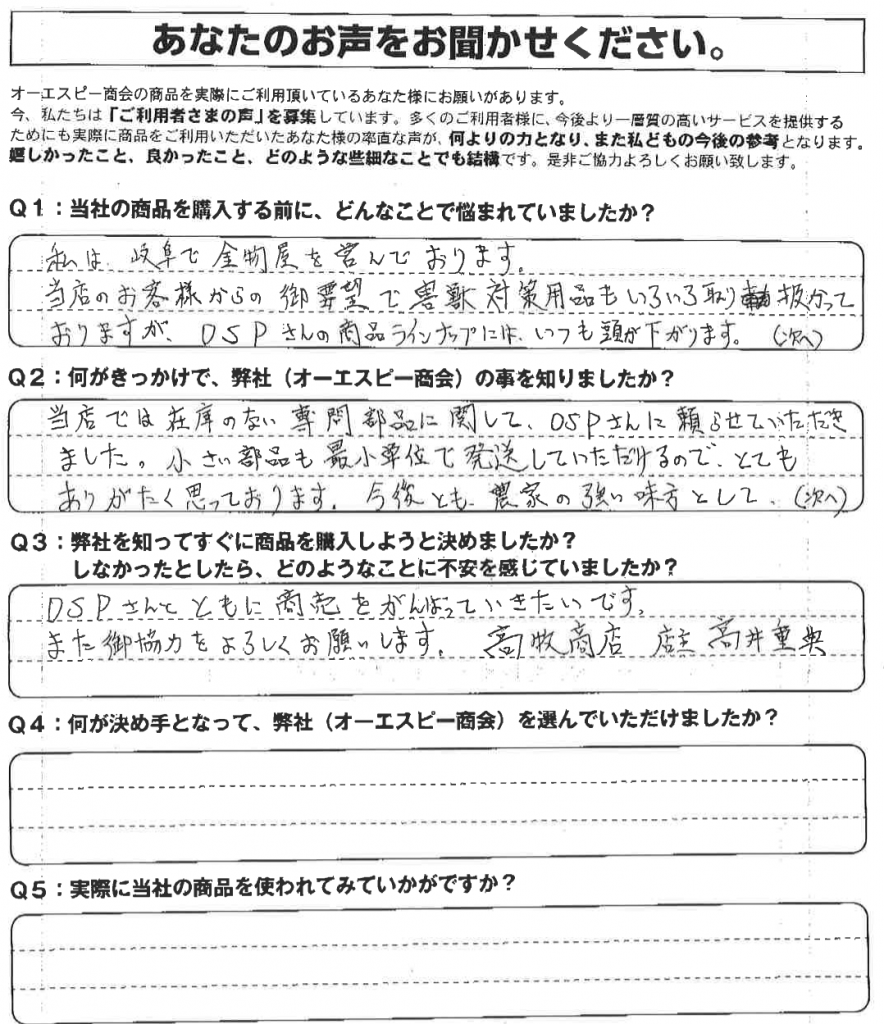 あなたのお声をお聞かせください。
オーエスピー商会の商品を実際にご利用頂いているあなた様にお願いがあります。
今、私たちは『ご利用者さまの声』を募集しています。多くのご利用者様に、今後より一層質の高いサービスを提供する
ためにも実際に商品をご利用いただいたあなた様の率直な声が、何よりの力となり、また私どもの今後の参考となります。
嬉しかったこと、良かったこと、どのような些細なことでも結構です。是非ご協力よろしくお願い致します。
Q1：当社の商品を購入する前に、どんなことで悩まれていましたか？
私は、岐阜で金物屋を営んでおります。
当店のお客様からの御要望で害獣対策用品もいろいろ取り扱かって
おりますが、OSPさんの商品ラインナップには、いつも頭が下がります。（次へ）
Q2：何がきっかけで、弊社（オーエスピー商会）の事を知りましたか？
当店では在庫のない専門部品に関して、OSPさんに頼らせていただき
ました。小さい部品も最小単位で発送していただけるので、とても
ありがたく思っております。今後とも、農家の強い味方として、（次へ）
Q3：弊社を知ってすぐに商品を購入しようと決めましたか？
しなかったとしたら、どのようなことに不安を感じていましたか？
OSPさんとともに商売をがんばっていきたいです。
また御協力をよろしくお願いします。 高牧商店 店主 高井重典
Q4：何が決め手となって、弊社（オーエスピー商会）を選んでいただけましたか？
Q5：実際に当社の商品を使われてみていかがですか？